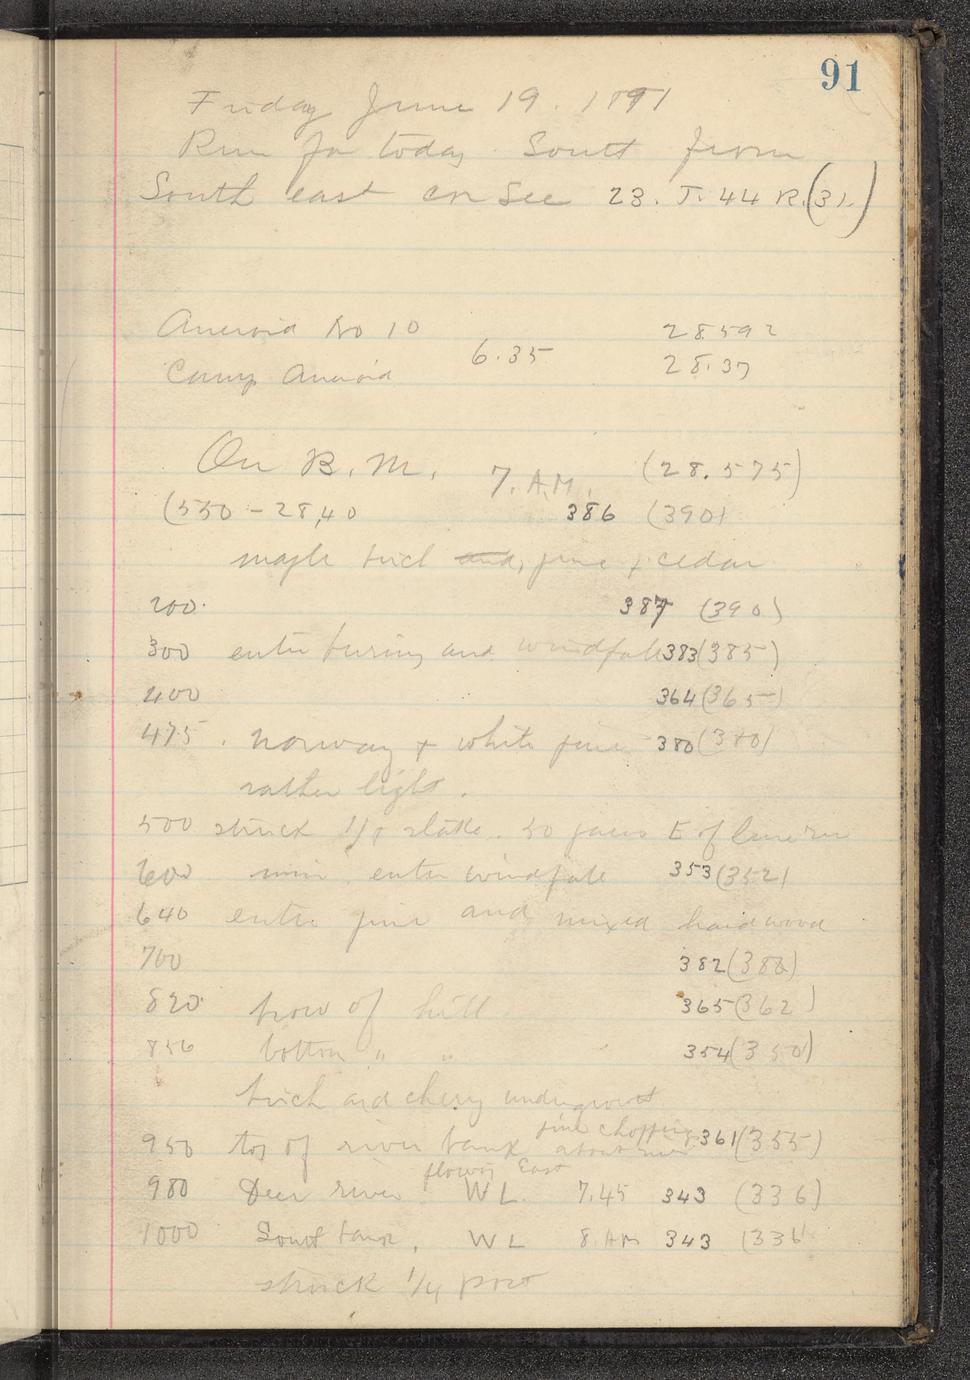 91
Friday June 19. 1891
Run for today South from
South east cor Sec 23. T. 44 R. (31.)
Aneroid No 10 28.592
6.35
Camp Aneroid 28.37
On B. M. 7. A.M. (28.575)
(550 - 28,40 386 (390)
maple birch and, pine + cedar
200. 387 (390)
300 enter burning and windfall 383 (385)
400 364 (365)
475. norway + white pine 380 (380)
rather light.
500 struck 1/8 stake. 50 paces E of line
600 enter windfall 353 (352)
640 enter pine and mixed hardwood
700 382 (388)
820 brow of hill 365 (362)
856 bottom " " 354 (350)
birch and cherry undergrowth
pine chopping
950 top of river bank about 361 (355)
flowing East
980 Deer river WL. 7.45 343 (336)
1000 South bank, WL 8 AM 343 (336
struck 1/4 post